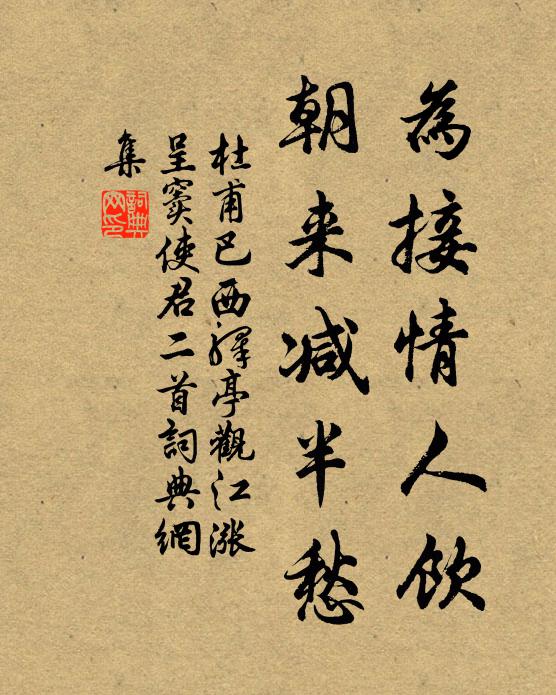 為接情人飲
朝来减半愁
杜甫巴西驛亭觀江漲
呈窦使君二首詞典網
集
詞典
网印